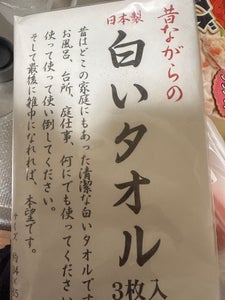 昔ながらの
日本製
白いタオル
3枚入
昔はどこの家庭にもあった清潔な白いタオルです
お風呂、台所、庭仕事、何にでも使ってください
使って使って使い倒してください。
そして最後に雑巾になれれば、本望です。
サイズ 約34×75